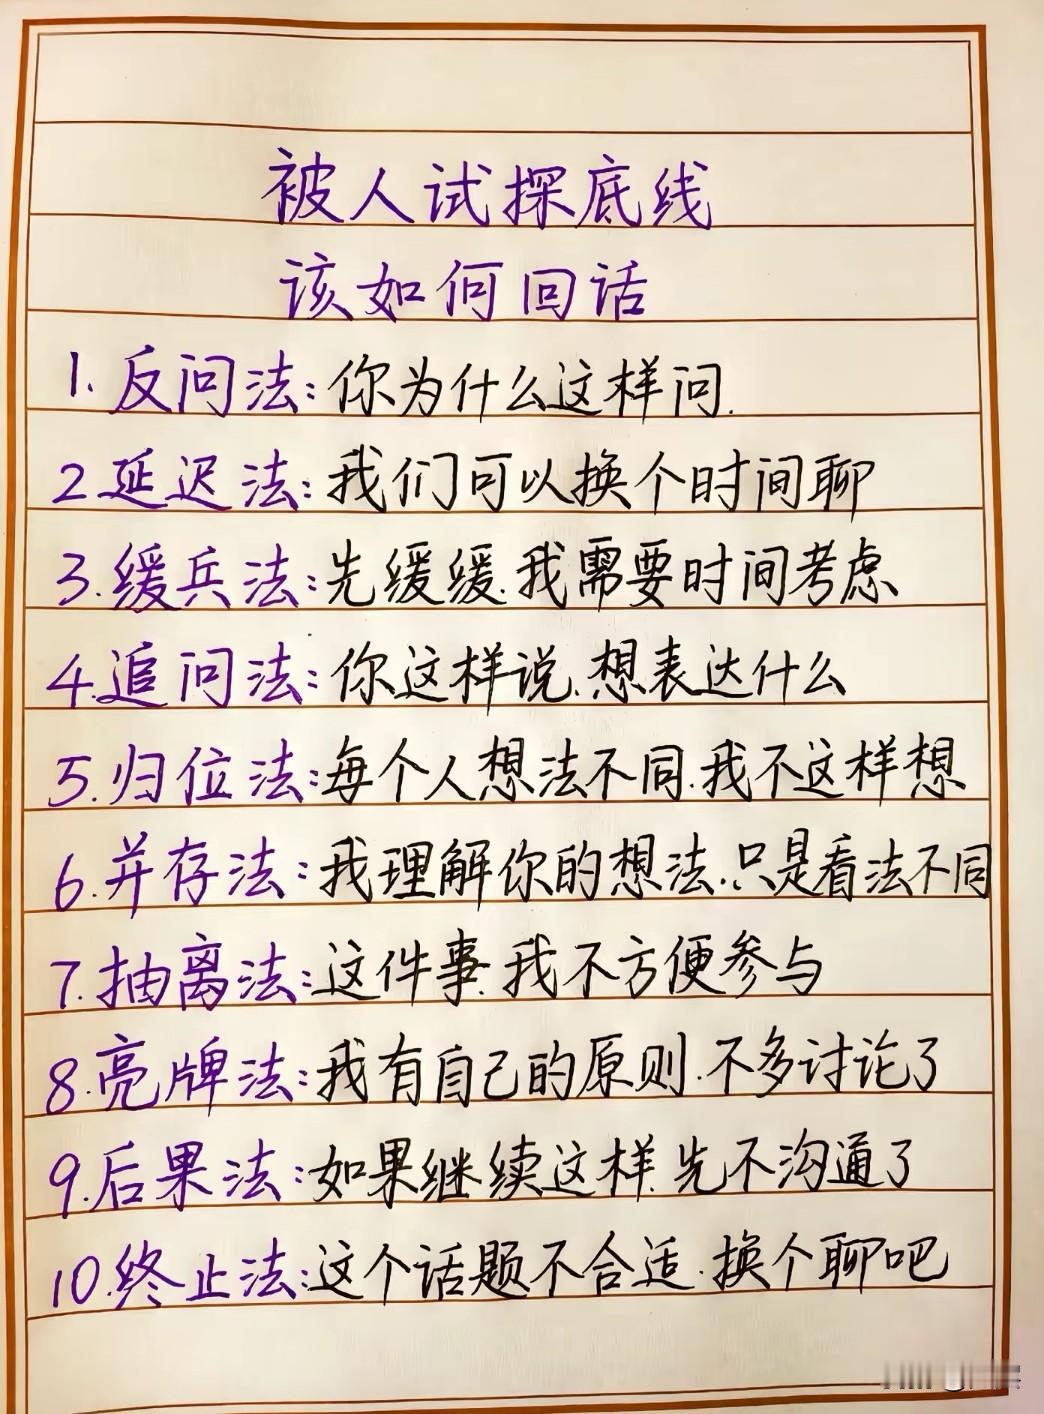 被人试探底线
该如何回话
1.反问法:你为什么这样问.
2延迟法:我们可以换个时间聊
3.缓兵法:先缓缓.我需要时间考虑
4.追问法:你这样说.想表达什么
5.归位法:每个人想法不同.我不这样想
6.并存法:我理解你的想法.只是看法不同
7.抽离法:这件事.我不方便参与
8.亮牌法:我有自己的原则.不多讨论了
9.后果法:如果继续这样.先不沟通了
10.终止法:这个话题不合适.换个聊吧